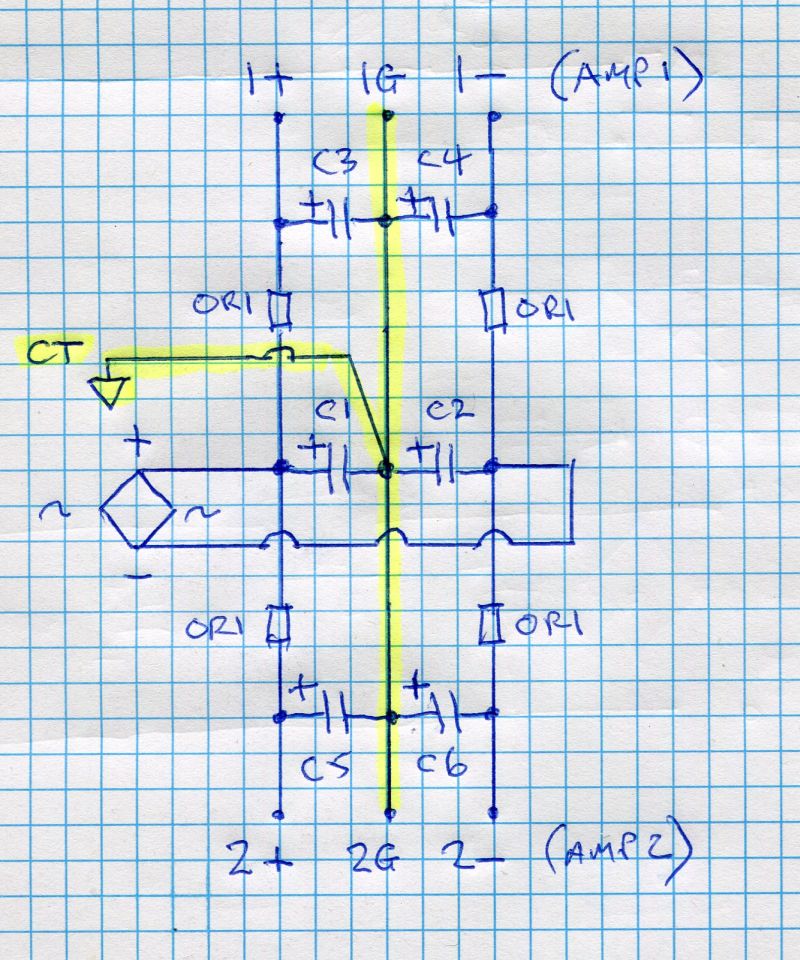 1+ 1G 1− (AMP1)
C3 C4
+ +
0R1 0R1
CT
C1 C2
+ + +
~ ~
−
0R1 0R1
+ +
C5 C6
2+ 2G 2− (AMP2)